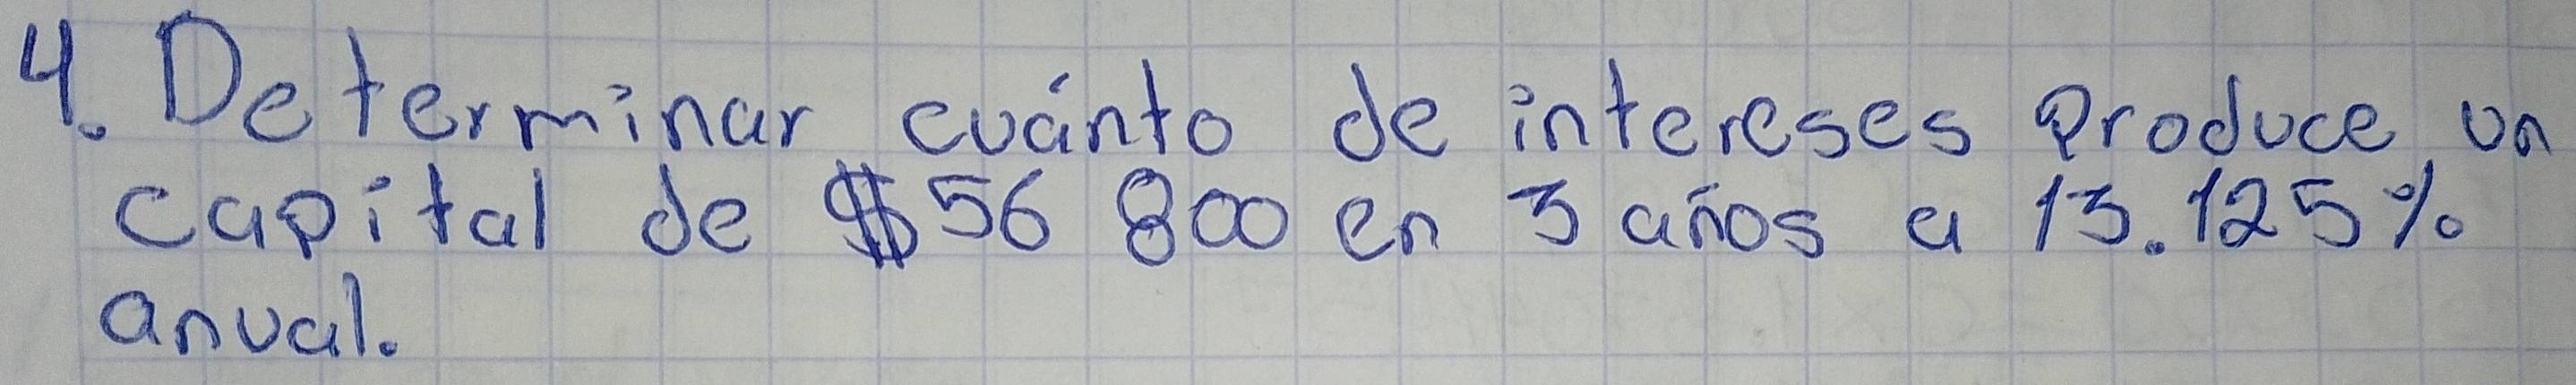 4. Determinar cuánto de intereses produce, un
capital de $56 800 en 3 años a 13.125%
anual.